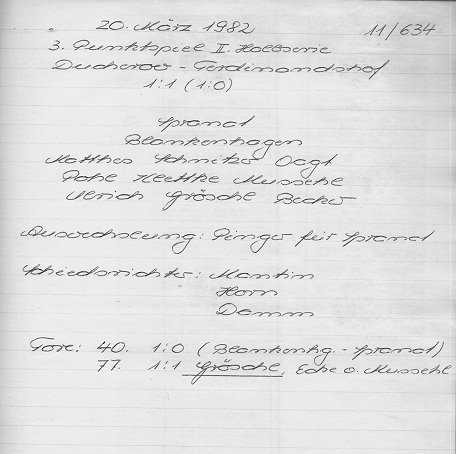 20. März 1982 11/634
3. Punktspiel II. Halbserie
Ducherow - Ferdinandshof
1:1 (1:0)
Spranat
Blankenhagen
Matthes Schmitzer Vagt
Pohl Klettke Mussehl
Ulrich Grösche Becker
Auswechslung: Pinger für Spranat
Schiedsrichter: Mantin
Horn
Damm
Tore: 40. 1:0 (Blankenhg. - Spranat)
77. 1:1 Grösche, Ecke v. Mussehl